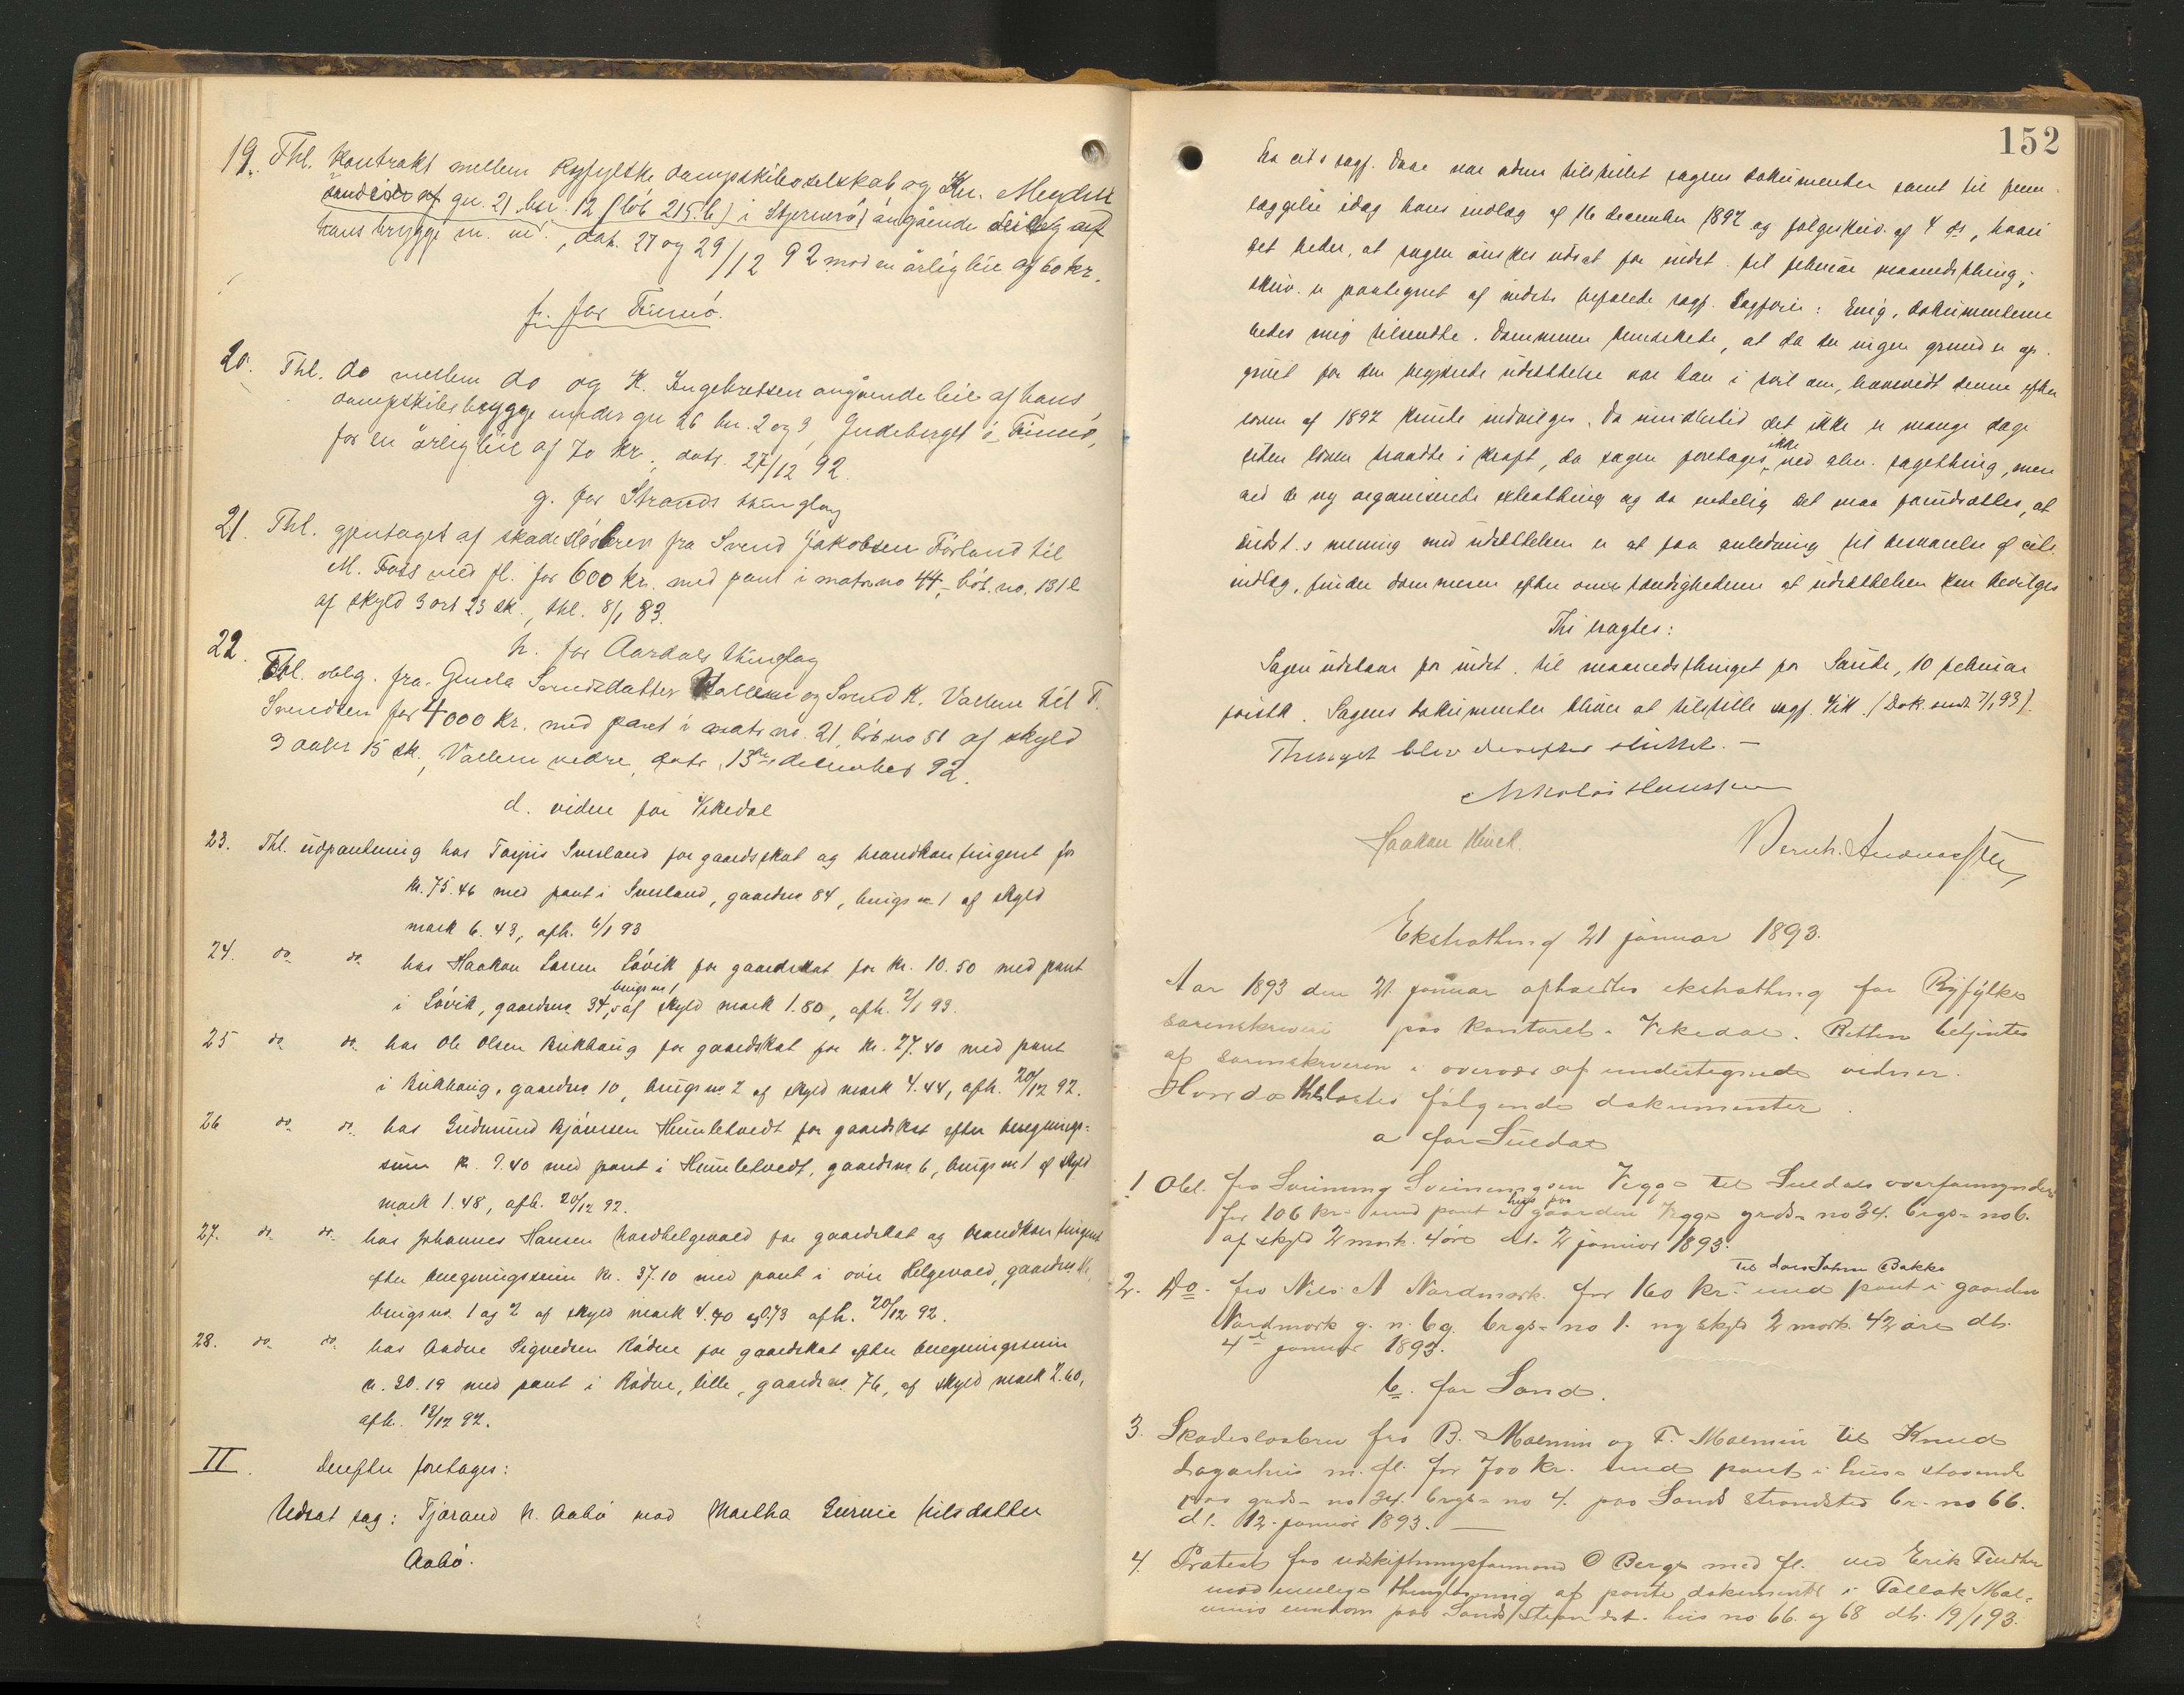 19. Thl. kontrakt mellem Ryfylske dampskibsselskab og Kr. Meydell
sandeide af gn. 21 bn. 12 (löb 215 b) i Stjernerö angående leie af
hans brygge m. m., dat. 27 og 29/12 92 mod en årlig leie af 60 kr.
f. for Finnö.
20. Thl. do mellem do og K. Ingebretsen angående leie af hans
dampskibsbrygge under gn 26 bn. 2 og 3, Judeberget i Finnö,
for en årlig leie af 70 kr., dat. 27/12 92.
g. for Strands thinglag
21. Thl. gjentaget af skadeslösbrev fra Svend Jakobsen Förland til
M. Foss med fl. for 600 kr. med pant i matr. no 44, löb. no. 131 b
af skyld 3 ort 23 sk., thl. 8/1 83.
h. for Aardals thinglag
22. Thl. oblg. fra Gunla Svendsdatter Valheim og Svend K. Valheim til T.
Svendsen for 4000 kr. med pant i matr no. 21, löb no 51 af skyld
3 daler 15 sk., Valheim nedre, dat. 13de december 92.
d. videre for Vikedal
23. Thl. udpantning hos Torjus Svesland for gaardskat og brandkontingent for
kr. 75.46 med pant i Svesland, gaardsno 84, brugsno 1 af skyld
mark 6.43, afh. 6/1 93
24. do do hos Haakon Larsen Lövik for gaardskat for kr. 10.50 med pant
i Lövik, gaardsno 34, brugsno 1 af skyld mark 1.80, afh. 2/1 93.
25 do do hos Ole Olsen Birkhaug for gaardskat for kr. 27.40 med pant
i Birkhaug, gaardsno 10, brugsno 2 af skyld mark 4.44, afh. 20/12 92.
26 do do hos Gudmund Bjönsen Humletvedt for gaardskat efter beregnings-
sum kr. 9.40 med pant i Humletvedt, gaardsno 6, brugsno 1 af skyld
mark 1.48, afh. 20/12 92.
27. do do hos Johannes Hansen Nordhelgevold for gaardskat og brandkontingent
efter beregningssum kr. 37.10 med pant i övre Helgevold, gaardsno
brugsno. 1 og 2 af skyld mark 4.90 og 0.73 afh. 20/12 92.
28. do do hos Aadne Sigvedsen Rödne for gaardskat efter beregningssum
kr. 30.19 med pant i Rödne, lille, gaardsno 76, af skyld mark 2.60,
afh. 12/12 92.
II. Derefter foretages:
Udsat sag: Tjerand N. Aabö mod Martha Gurine Nilsdatter
Aabö.
152
Fra cit.s sagf. Daae var adm. tilstillet sagens dokumenter samt til frem-
læggelse idag hans indlæg af 16 december 1892 og følgeskriv. af 4 ds, hvori
det heder, at sagen ønskes udsat for indst. til februar maanedsthing;
skriv. er paategnet af indsts befalede sagf. Sagfører: Enig, dokumenterne
bedes mig tilsendte. Dommeren bemærkede, at da der ingen grund er op-
givet for den begjærede udsættelse var han i tvil om, hvorvidt denne efter
loven af 1892 kunde indvilges. Da imidlertid det ikke er mange dage
siden loven traadte i kraft, da sagen foretages ikke ved alm. sagething, men
ved et ny organiserede extrathing og da endelig det maa forudsættes, at
indst.s mening med udsættelsen er at faa anledning til besvarelse af cits.
indlæg, finder dommeren efter omstændighederne at udsættelsen kan bevilges
Thi eragtes:
Sagen udstaar for indst. til maanedsthinget for Sande, 10 februar
førstk. Sagens dokumenter bliver at tilstille sagf. Vik. (Dok. send. 7/1 93).
Thinget blev derefter sluttet. –
Nikolai Hanssen
Haakon Hinck. Bernh. Andreassen
Ekstrathing 21 januar 1893.
Aar 1893 den 21 januar afholdtes ekstrathing for Ryfylke
sorenskriveri paa kontoret i Vikedal. Retten betjentes
af sorenskriveren i overvær af undertegnede vidner.
Hvor da thlæstes følgende dokumenter.
a for Suldal
1 Obl. fra Svinung Svinungsen Vegge til Suldals overformynderi
for 106 kr. med pant i hus paa gaarden Vegge grds- no 34. brgs- no 6.
af skyld 2 mark 4 öre dt. 2 januar 1893.
2. Do. fra Nils A Nordmork til Lars Johns Bakke for 160 kr. med pant i gaarden
Nordmork g. n. 69. brgs- no 1. ny skyld 2 mark 42 öre dt.
4de januar 1893.
b. for Sand.
3. Skadeslosbrev fra B. Malmin og T. Malmin til Knud
Lagarhus m. fl. for 700 kr. med pant i huse staaende
paa grds- no 34. brgs- no 4. paa Sands strandsted br. no 66.
dt. 12. januar 1893. –
4. Protest fra udskiftningsformand O Berge med fl. ved Erik
mod mulige thinglysning af pante dokumenter i Tollak Mal-
mins eiendom paa Sands strandst. hus no 66. og 68 dt. 19/1 93.